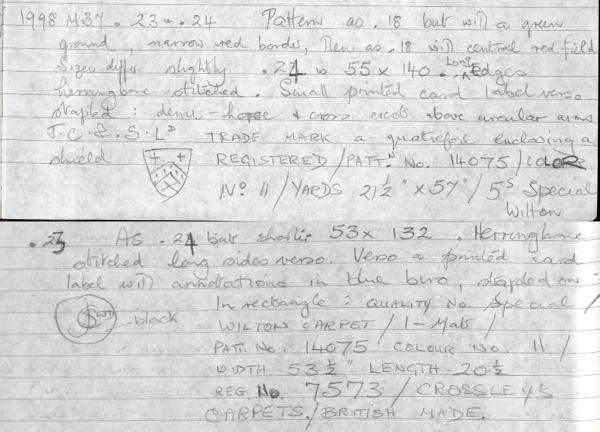 1998 M37. 23 & .24 Pattern as .18 but with a green
ground, narrow red border, then as .18 with central red field
Sizes differ slightly .24 is 55 x 140. Long edges
herringbone stitched. Small printed card label verso
stapled: demi-horse & cross crests above circular arms
T.C.&.S.Lᴰ TRADE MARK a quatrefoil enclosing a
shield REGISTERED / PATTᴺ No. 14075 / COLOR
Nº 11 / YARDS 21½" x 57" / 5ˢ Special
Wilton
.23 As .24 but shorter 53 x 132. Herringbone
stitched long sides verso. Verso a printed card
label with annotations in blue biro, stapled on :
black In rectangle: QUALITY No. Special /
WILTON CARPET / 1-Mat /
PATT. No. 14075 COLOUR No. 11 /
WIDTH 53½" LENGTH 20½
REG. No. 7573 / CROSSLEY'S
CARPETS. / BRITISH MADE.